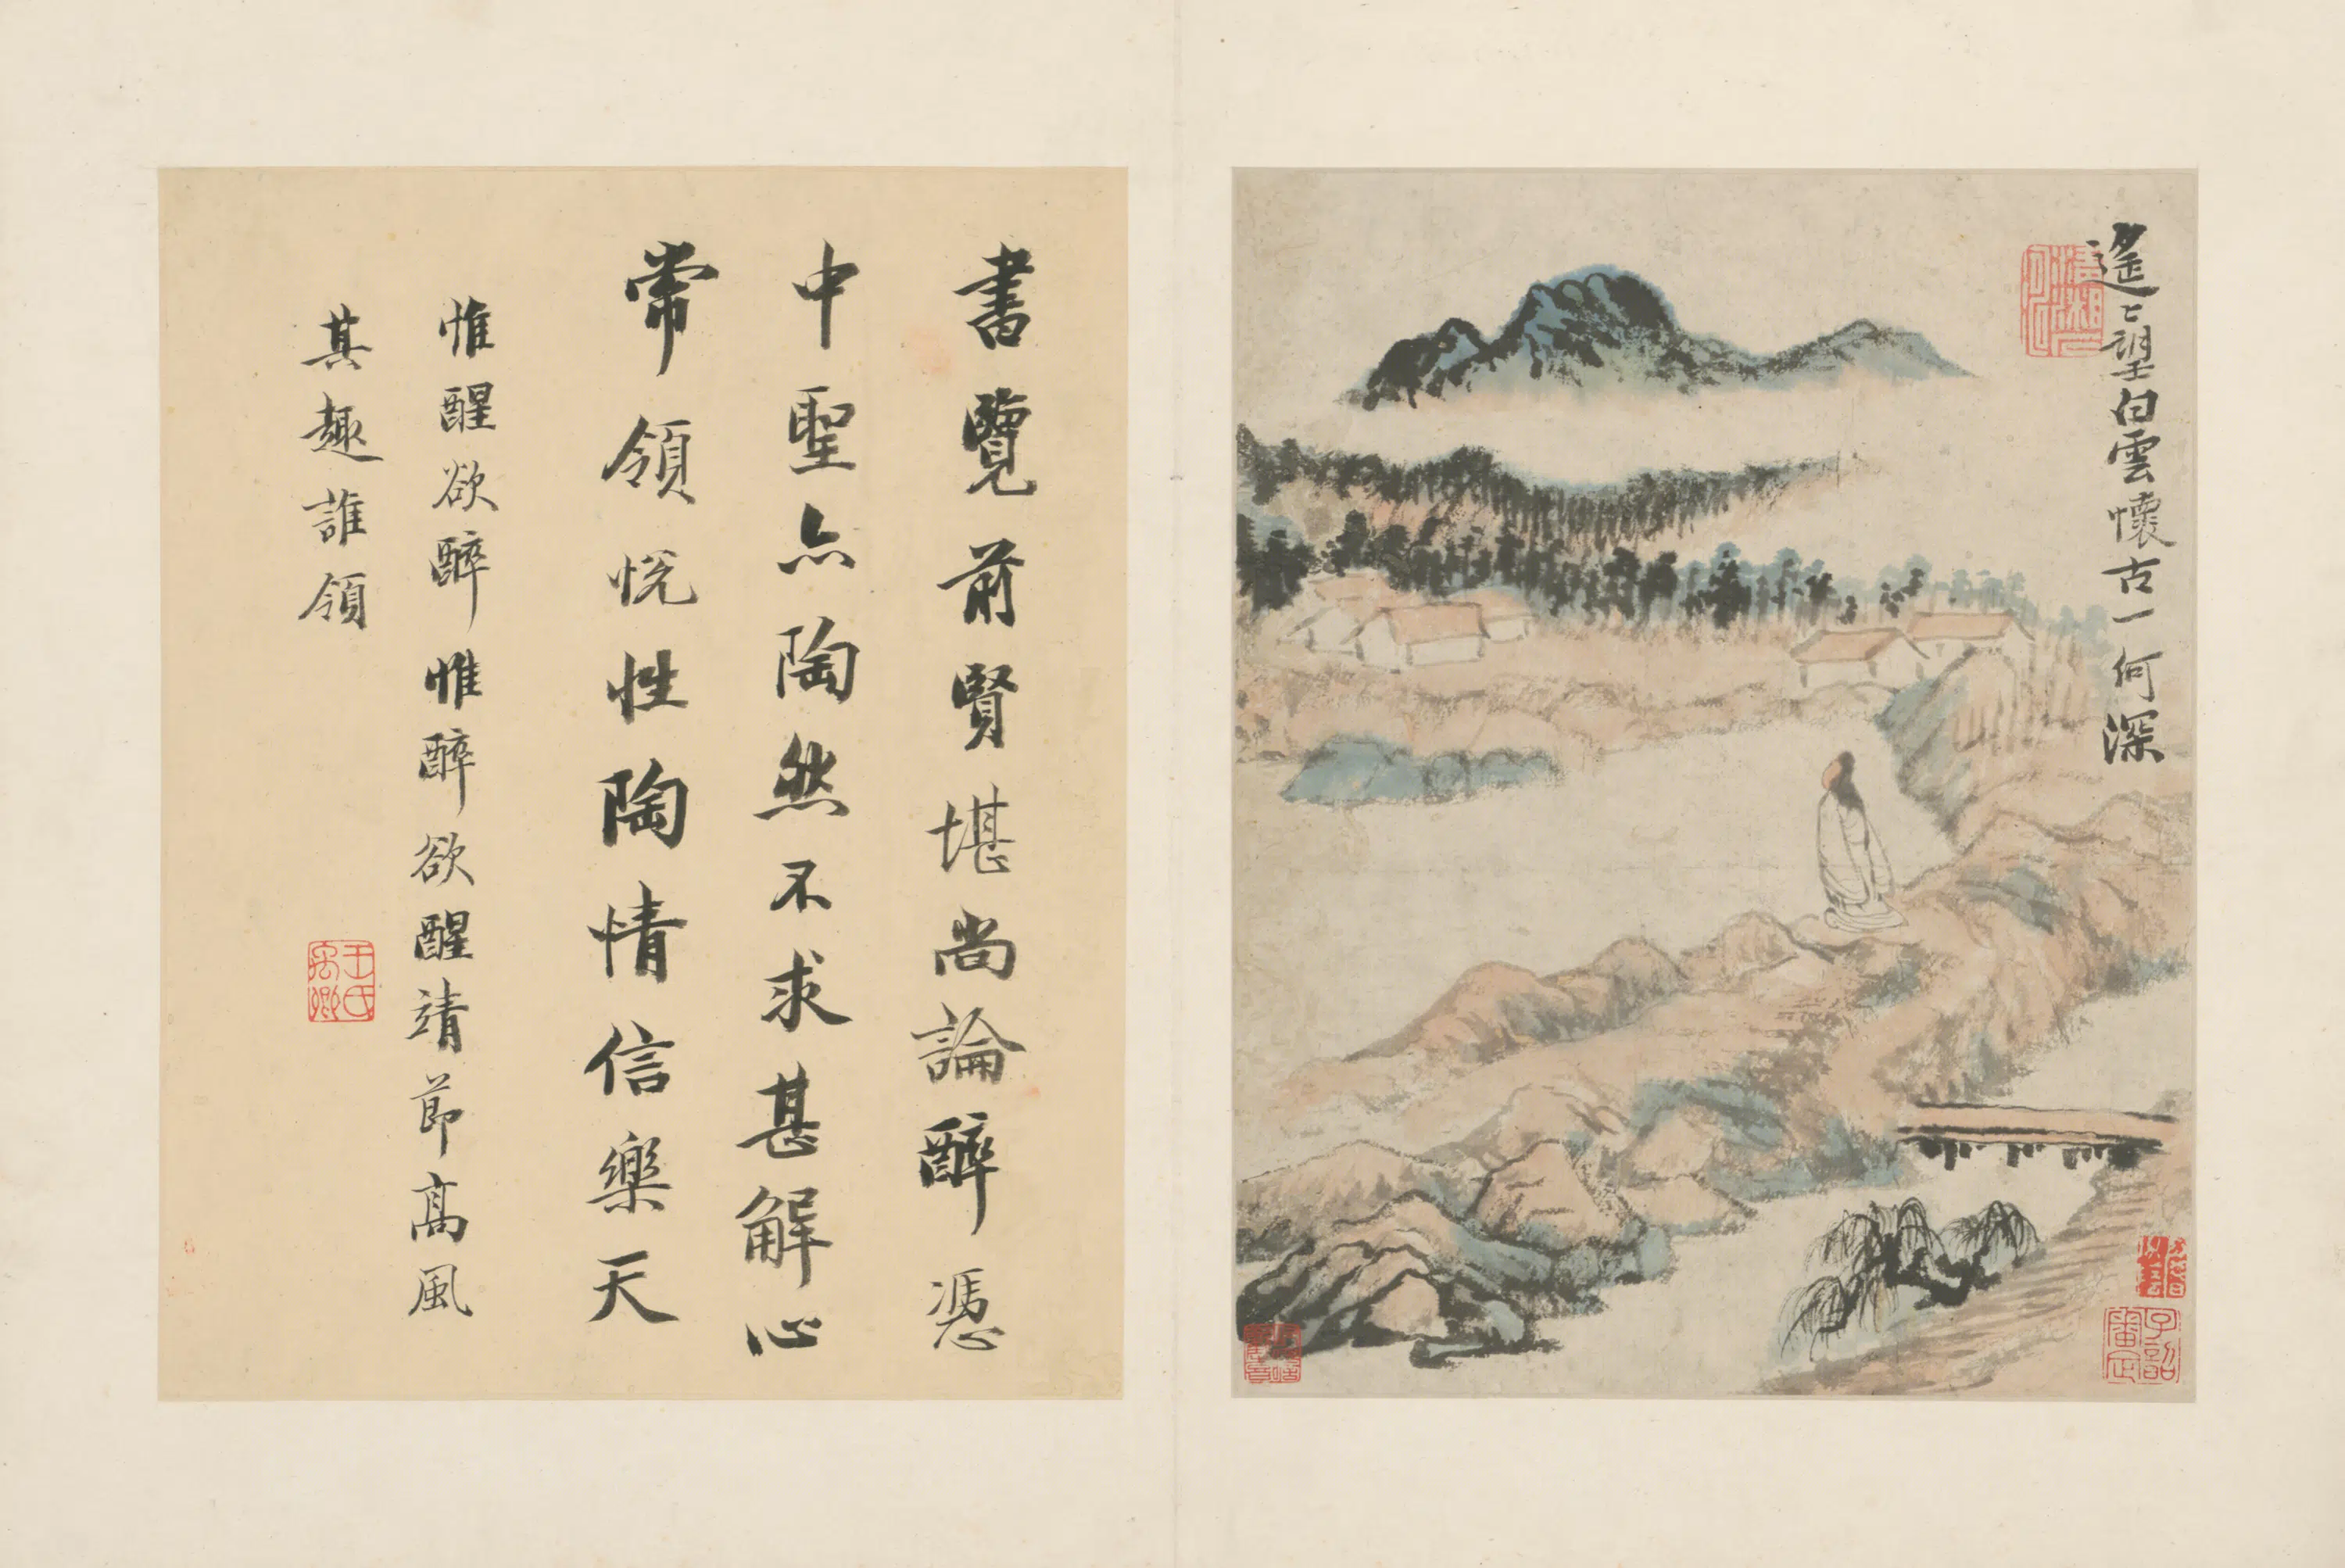 遙〻望白雲懷古一何深
書覽前賢堪尚論醉憑
中聖亦陶然不求甚解心
常領悦性陶情信樂天
惟醒欲醉惟醉欲醒靖節高風
其趣誰領
王氏